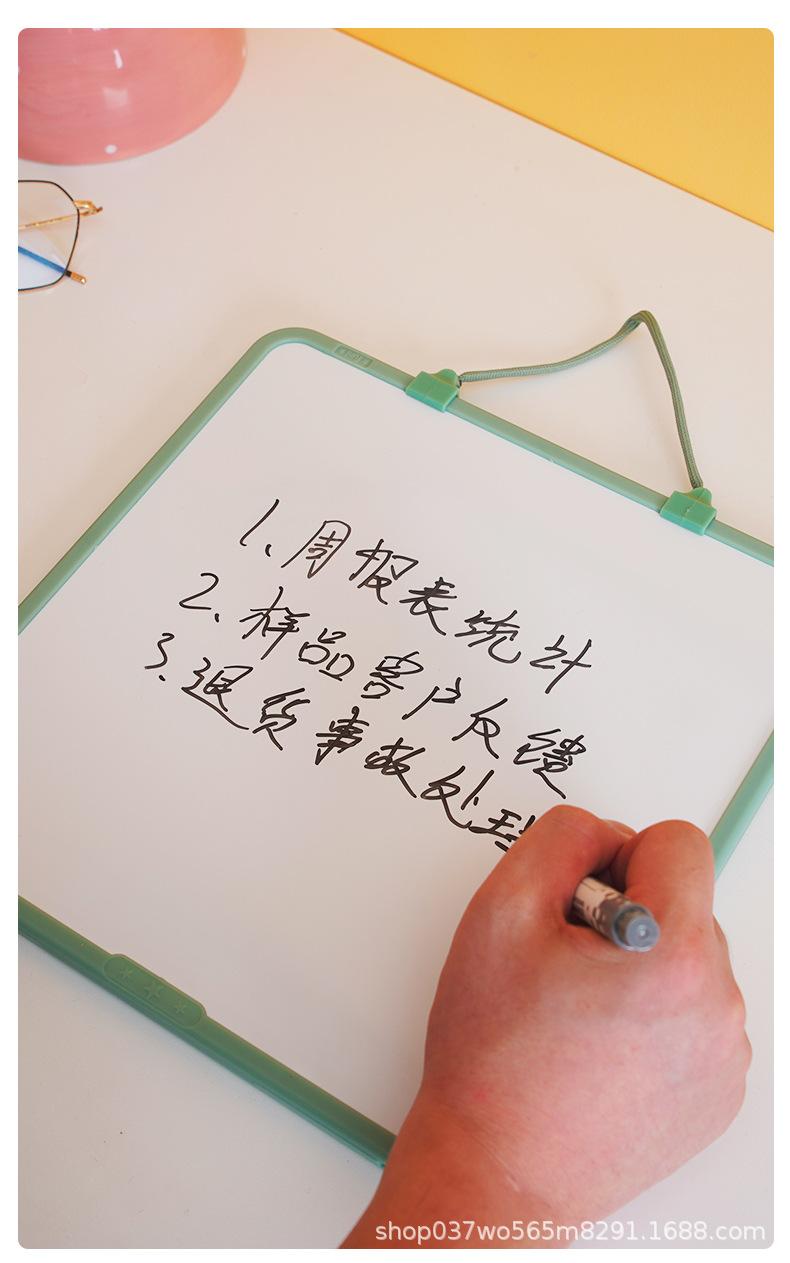 1、周报表统计
2、样品客户反馈
3、退货事故处理
shop037wo565m8291.1688.com